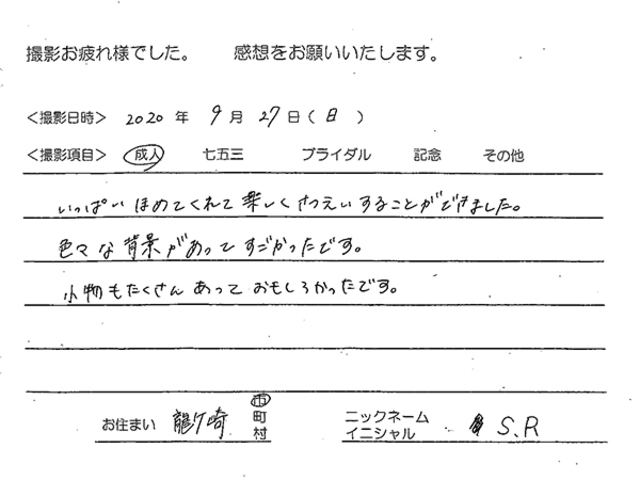 撮影お疲れ様でした。 感想をお願いいたします。
<撮影日時> 2020 年 9 月 27 日 ( 日 )
<撮影項目> 成人 七五三 ブライダル 記念 その他
いっぱい ほめてくれて 楽しく さつえい することができました。
色々な 背景があって すごかったです。
小物もたくさん あって おもしろかったです。
お住まい 龍ケ崎 市 町 村 ニックネーム イニシャル S.R